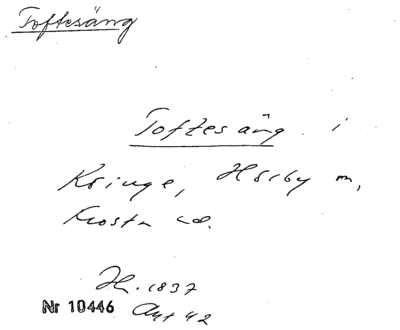 Toftesäng
Toftesäng i
Kringe, Hörby sn,
Frosta hd.
Hh. 1837
Nr 10446 Akt 42